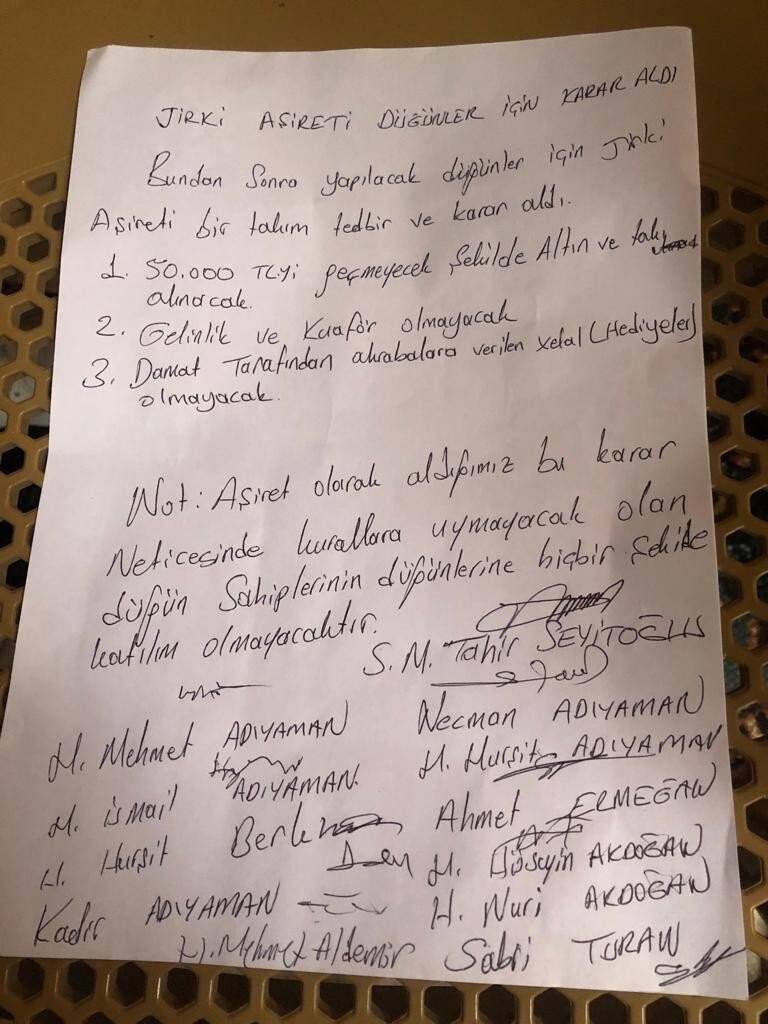 JİRKİ AŞİRETİ DÜĞÜNLER İÇİN KARAR ALDI
Bundan Sonra yapılacak düğünler için Jirki
Aşireti bir takım tedbir ve karar aldı.
1. 50.000 TLyi geçmeyecek Şekilde Altın ve takı
alınacak.
2. Gelinlik ve Kuaför olmayacak
3. Damat Tarafından akrabalara verilen xelat (Hediyeler)
olmayacak.
Not: Aşiret olarak aldığımız bu karar
Neticesinde kurallara uymayacak olan
düğün Sahiplerinin düğünlerine hiçbir şekilde
katılım olmayacaktır.
S. M. Tahir SEYİTOĞLU
H. Mehmet ADIYAMAN Necman ADIYAMAN
H. ismail ADIYAMAN. H. Hurşit ADIYAMAN
H. Hurşit Ahmet ERMEĞAN
H. Hüseyin AKDOĞAN
Kadir ADIYAMAN H. Nuri AKDOĞAN
H. Mehmet Aldemir Sabri TURAN